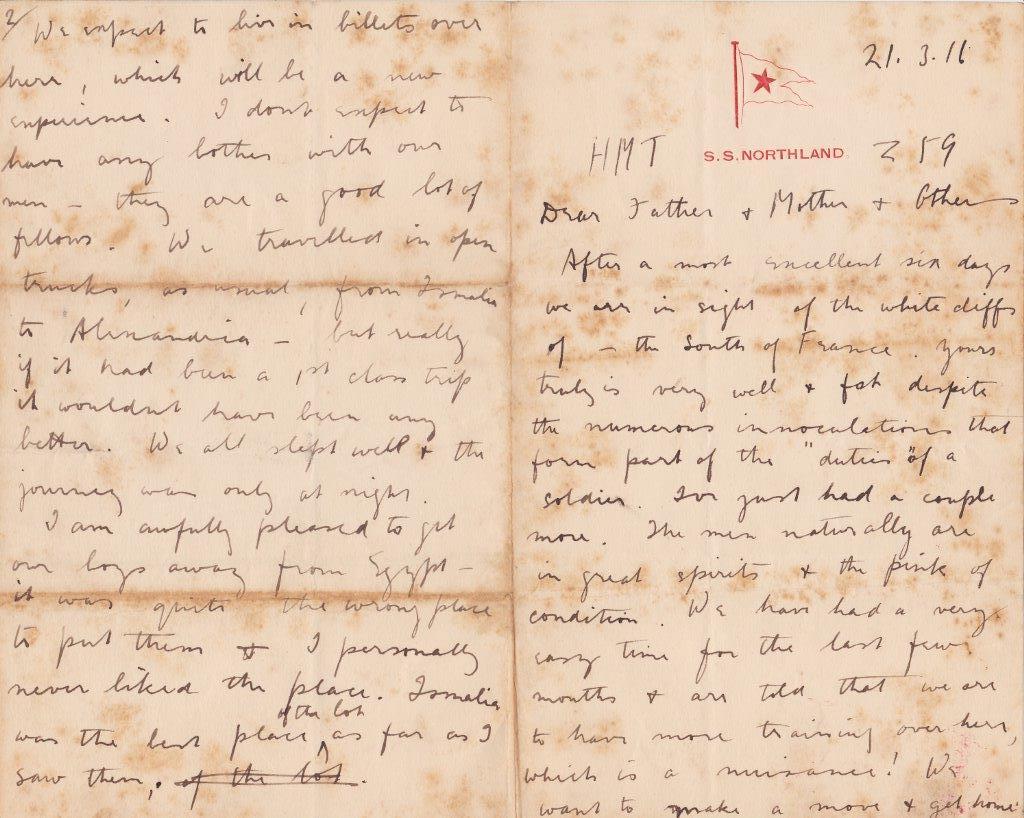 21. 3. 16
HMT S.S. NORTHLAND Z 59
Dear Father + Mother + Others
After a most excellent six days
we are in sight of the white cliffs
of — the South of France. Yours
truly is very well + fat despite
the numerous innoculations that
form part of the "duties" of a
soldier. I've just had a couple
more. The men naturally are
in great spirits + the pink of
condition. We have had a very
easy time for the last few
months + are told that we are
to have more training over here,
which is a nuisance! We
want to make a move + get home
2/ We expect to live in billets over
here, which will be a new
experience. I dont expect to
have any bother with our
men — they are a good lot of
fellows. We travelled in open
trucks, as usual, from Ismalia
to Alexandria — but really
if it had been a 1st class trip
it wouldn't have been any
better. We all slept well + the
journey was only at night.
I am awfully pleased to get
our boys away from Egypt —
it was quite the wrong place
to put them + I personally
never liked the place. Ismalia
of the lot
was the best place, as far as I
saw them, of the lot.